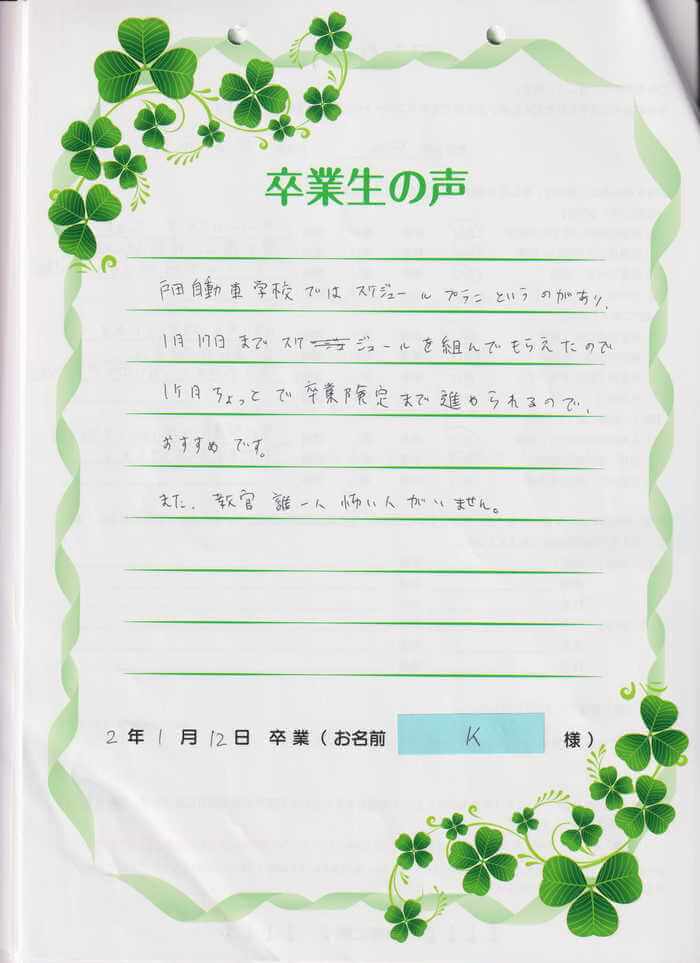 卒業生の声
戸田自動車学校ではスケジュールプランというのがあり、
1月17日までスケジュールを組んでもらえたので
1ヶ月ちょっとで卒業検定まで進められるので、
おすすめです。
また、教官誰一人怖い人がいません。
2年1月12日 卒業(お名前 K 様)